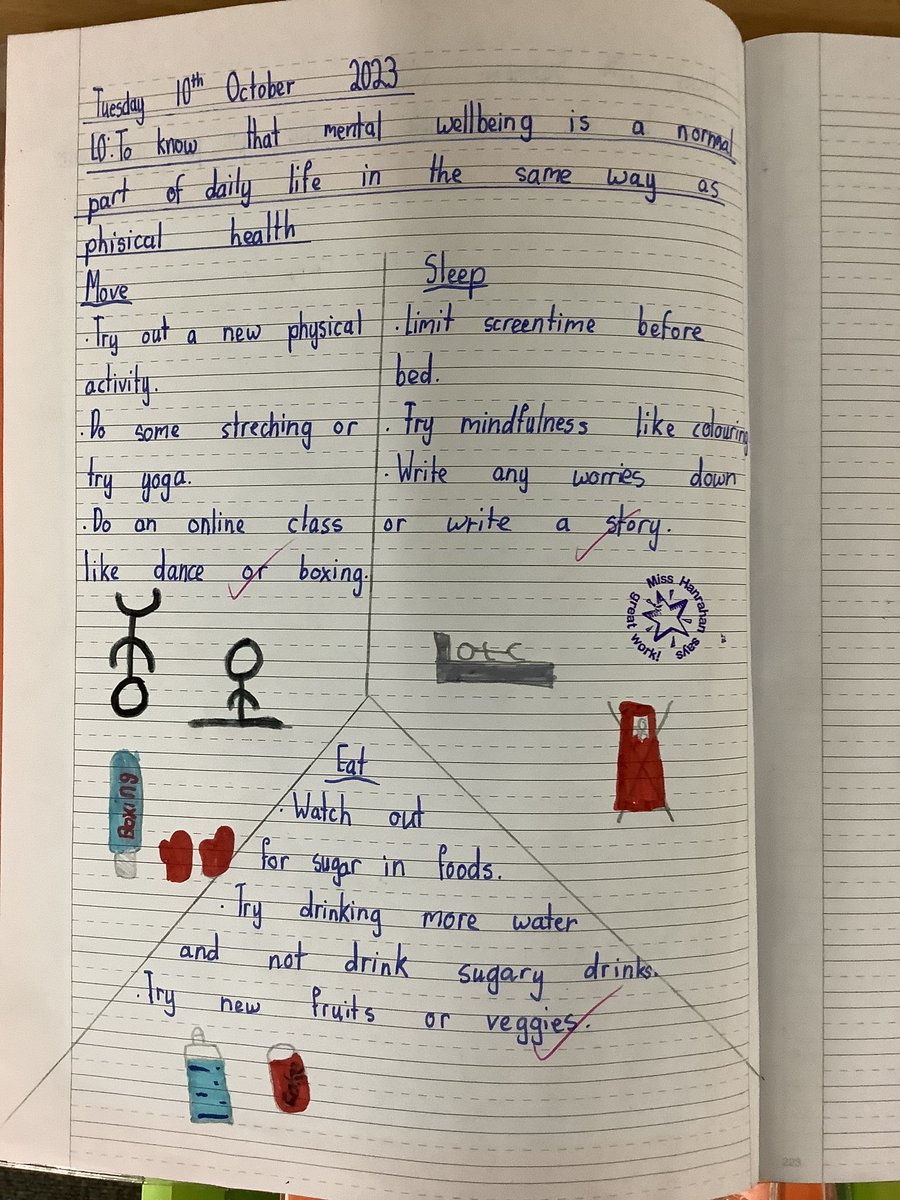 Tuesday 10th October 2023
LO: To know that mental wellbeing is a normal
part of daily life in the same way as
phisical health
Move
· Try out a new physical
activity.
· Do some streching or
try yoga.
· Do an online class
like dance or boxing.
Sleep
· Limit screentime before
bed.
· Try mindfulness like colouring
· Write any worries down
or write a story.
Miss Hanrahan says
great work!
Boxing
Eat
· Watch out
for sugar in foods.
· Try drinking more water
and not drink sugary drinks.
· Try new fruits or veggies.
223